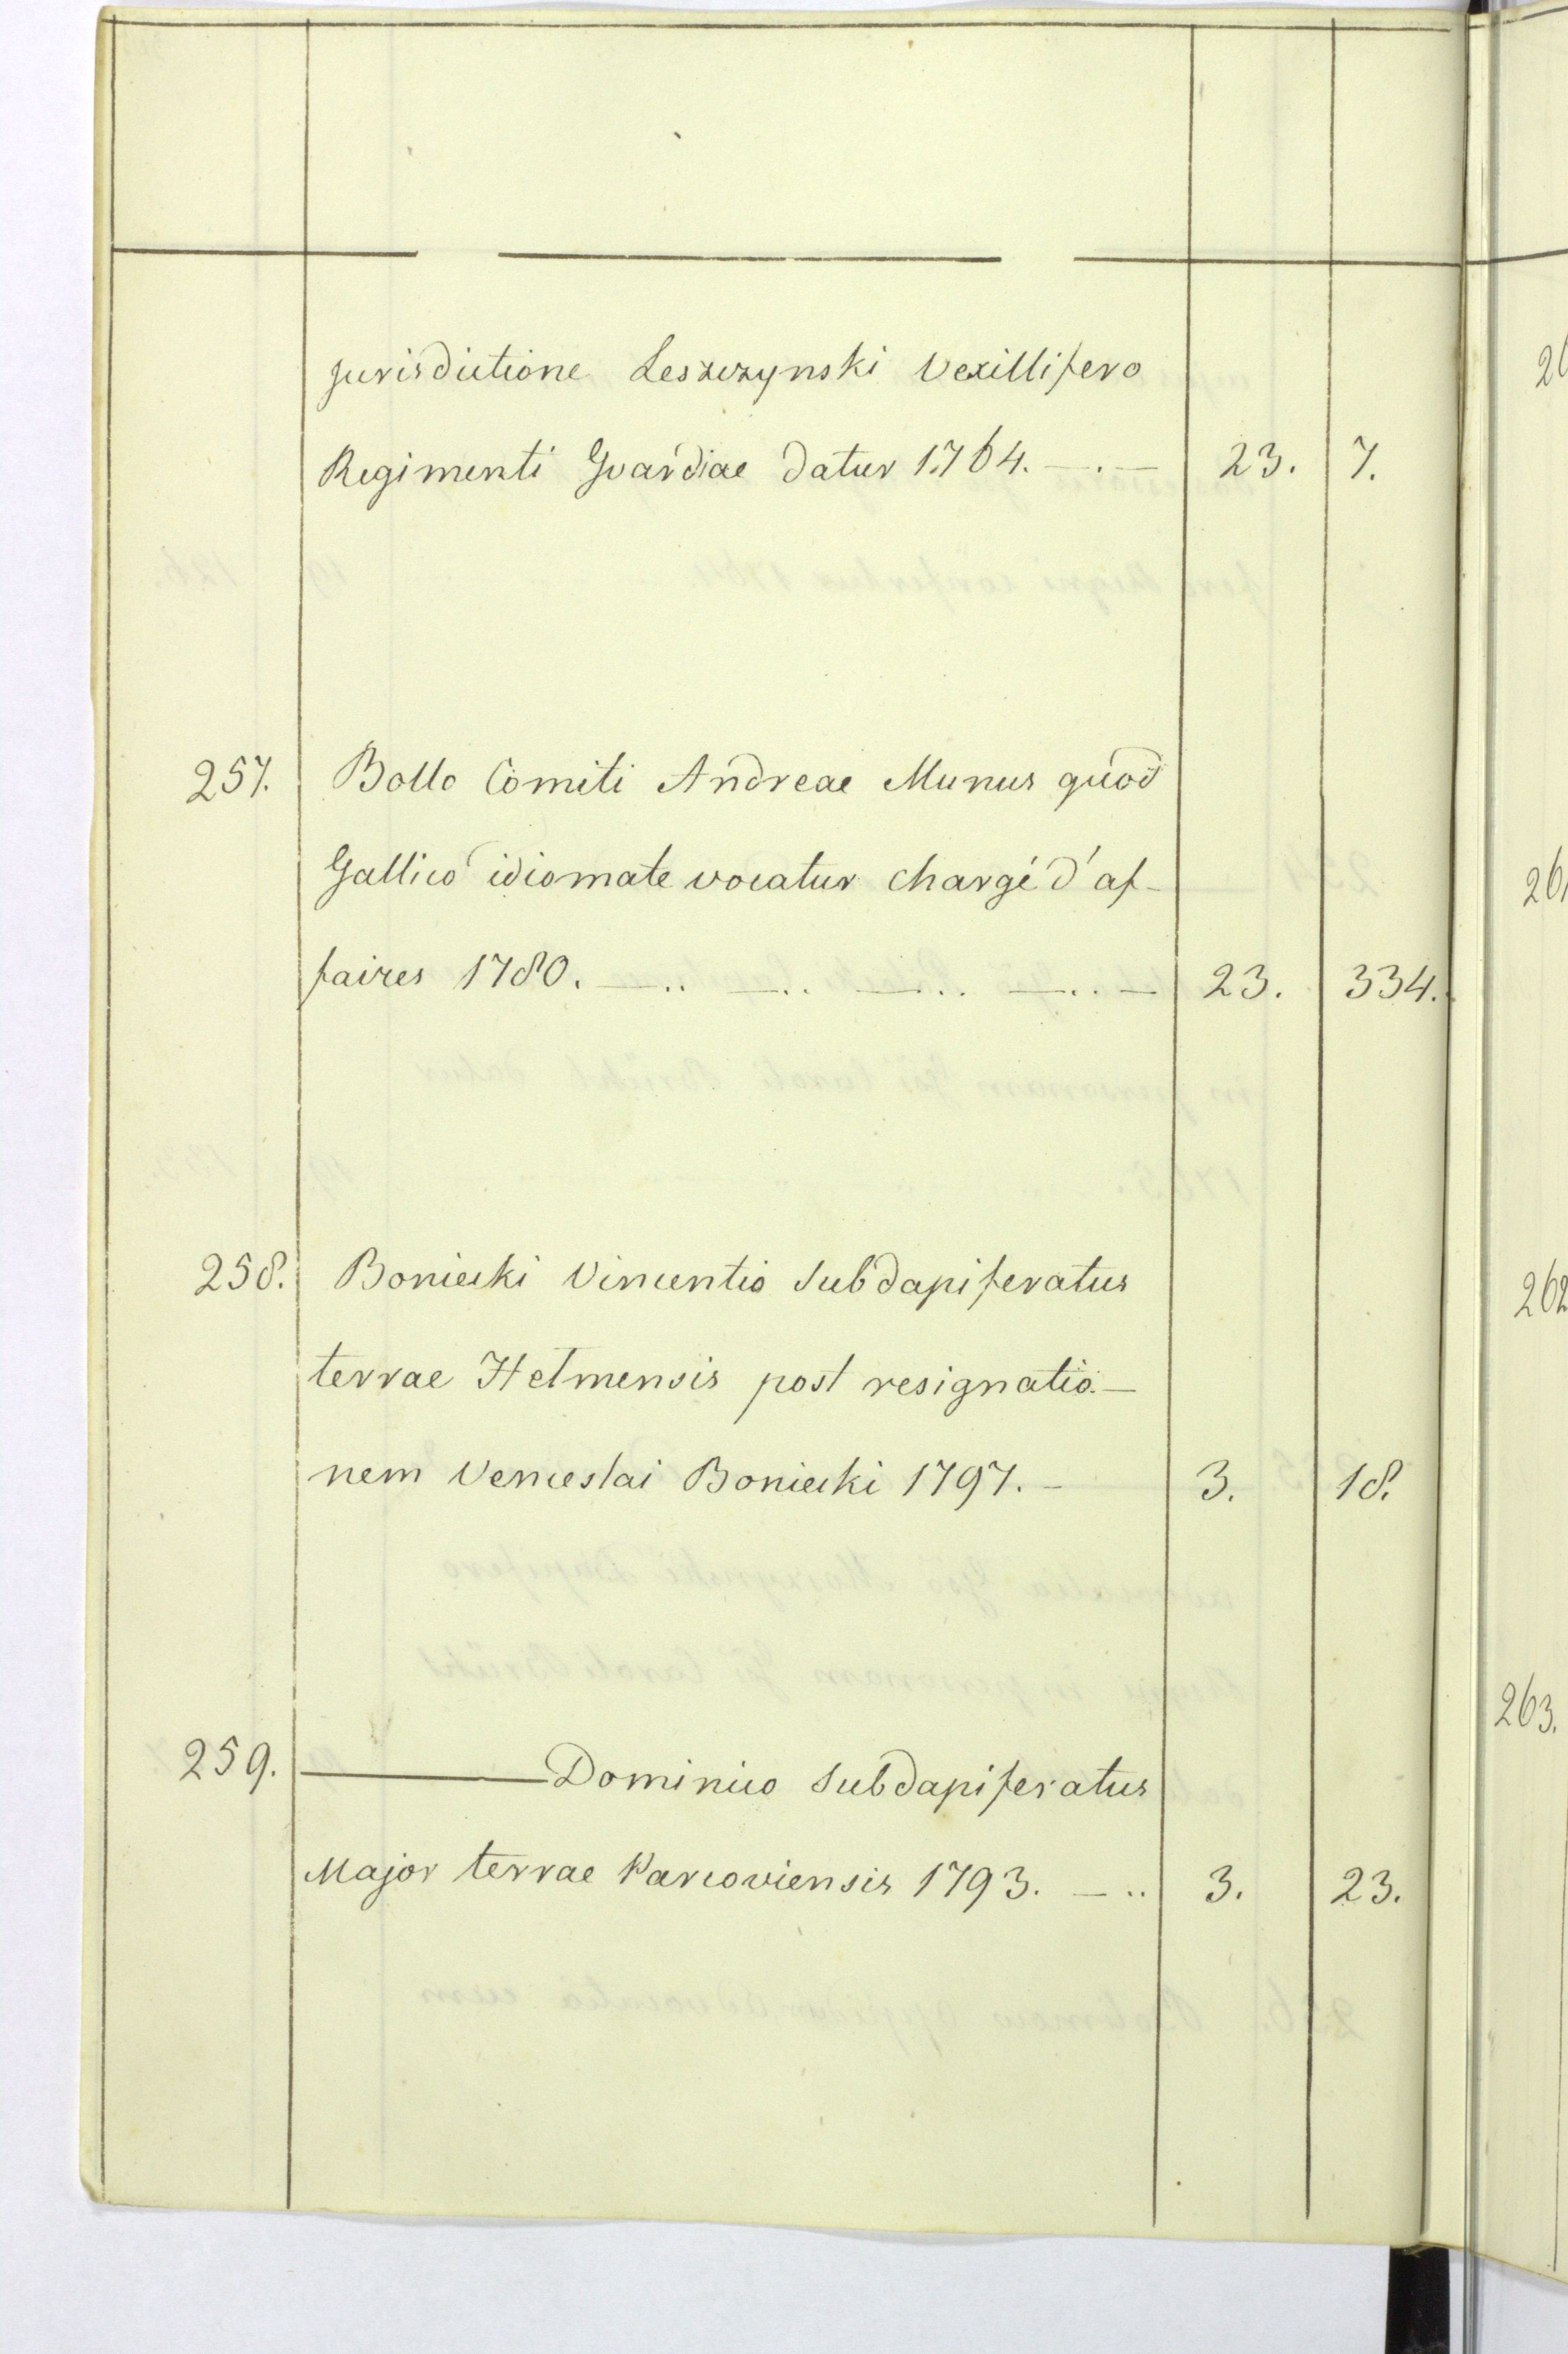 jurisdictione Leszczynski Vexillifero
Regimenti Gvardiae datur 1764. — . — 23. 7.
257. Bollo Comiti Andreae Munus quod
Gallico idiomate vocatur chargé d'af-
faires 1780. — .. — .. — .. — .. — 23. 334.
258. Boniecki Vincentio Subdapiferatus
terrae Helmensis post resignatio-
nem Venceslai Boniecki 1797. — 3. 18.
259. ——— Dominico Subdapiferatus
Major terrae Parcoviensis 1793. — .. 3. 23.
261
262
263.